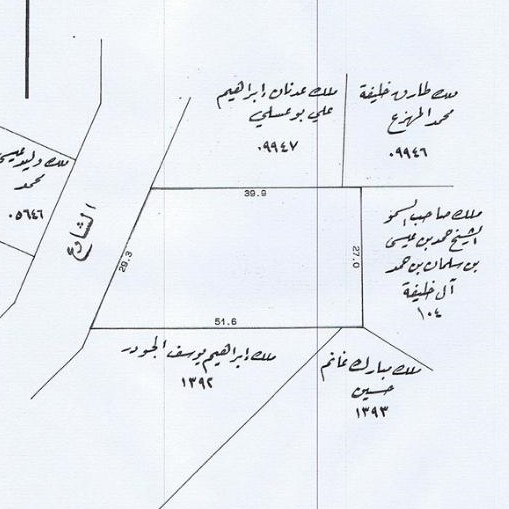 ملك عدنان إبراهيم
علي بوعسلي
٠٩٩٤٧
ملك طارق خليفة
محمد المهزع
٠٩٩٤٦
ملك وليد عيسى
محمد
٠٥٦٤٦
الشارع
39.9
29.3
27.0
51.6
ملك صاحب السمو
الشيخ حمد بن عيسى
بن سلمان بن حمد
آل خليفة
١٠٤
ملك إبراهيم يوسف الجودر
١٣٩٢
ملك مبارك غانم
حسين
١٣٩٣